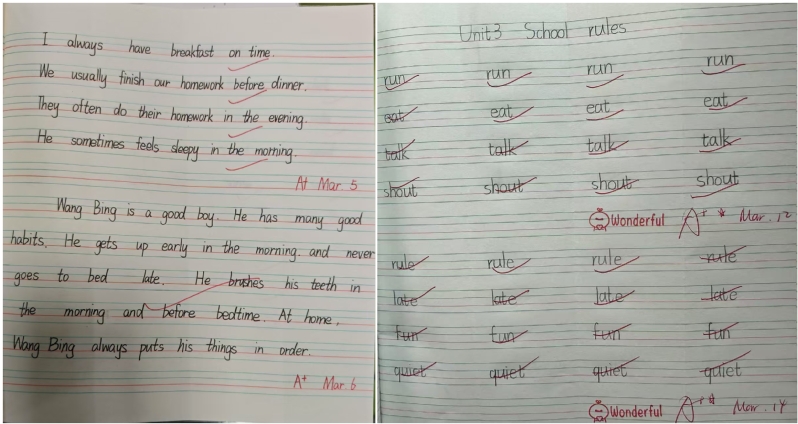 I always have breakfast on time.
We usually finish our homework before dinner.
They often do their homework in the evening.
He sometimes feels sleepy in the morning.
A+ Mar. 5
Wang Bing is a good boy. He has many good
habits. He gets up early in the morning. and never
goes to bed late. He brushes his teeth in
the morning and before bedtime. At home,
Wang Bing always puts his things in order.
A+ Mar. 6
Unit3 School rules
run run run run
eat eat eat eat
talk talk talk talk
shout shout shout shout
Wonderful A+ Mar. 12
rule rule rule rule
late late late late
fun fun fun fun
quiet quiet quiet quiet
Wonderful A+ Mar. 14